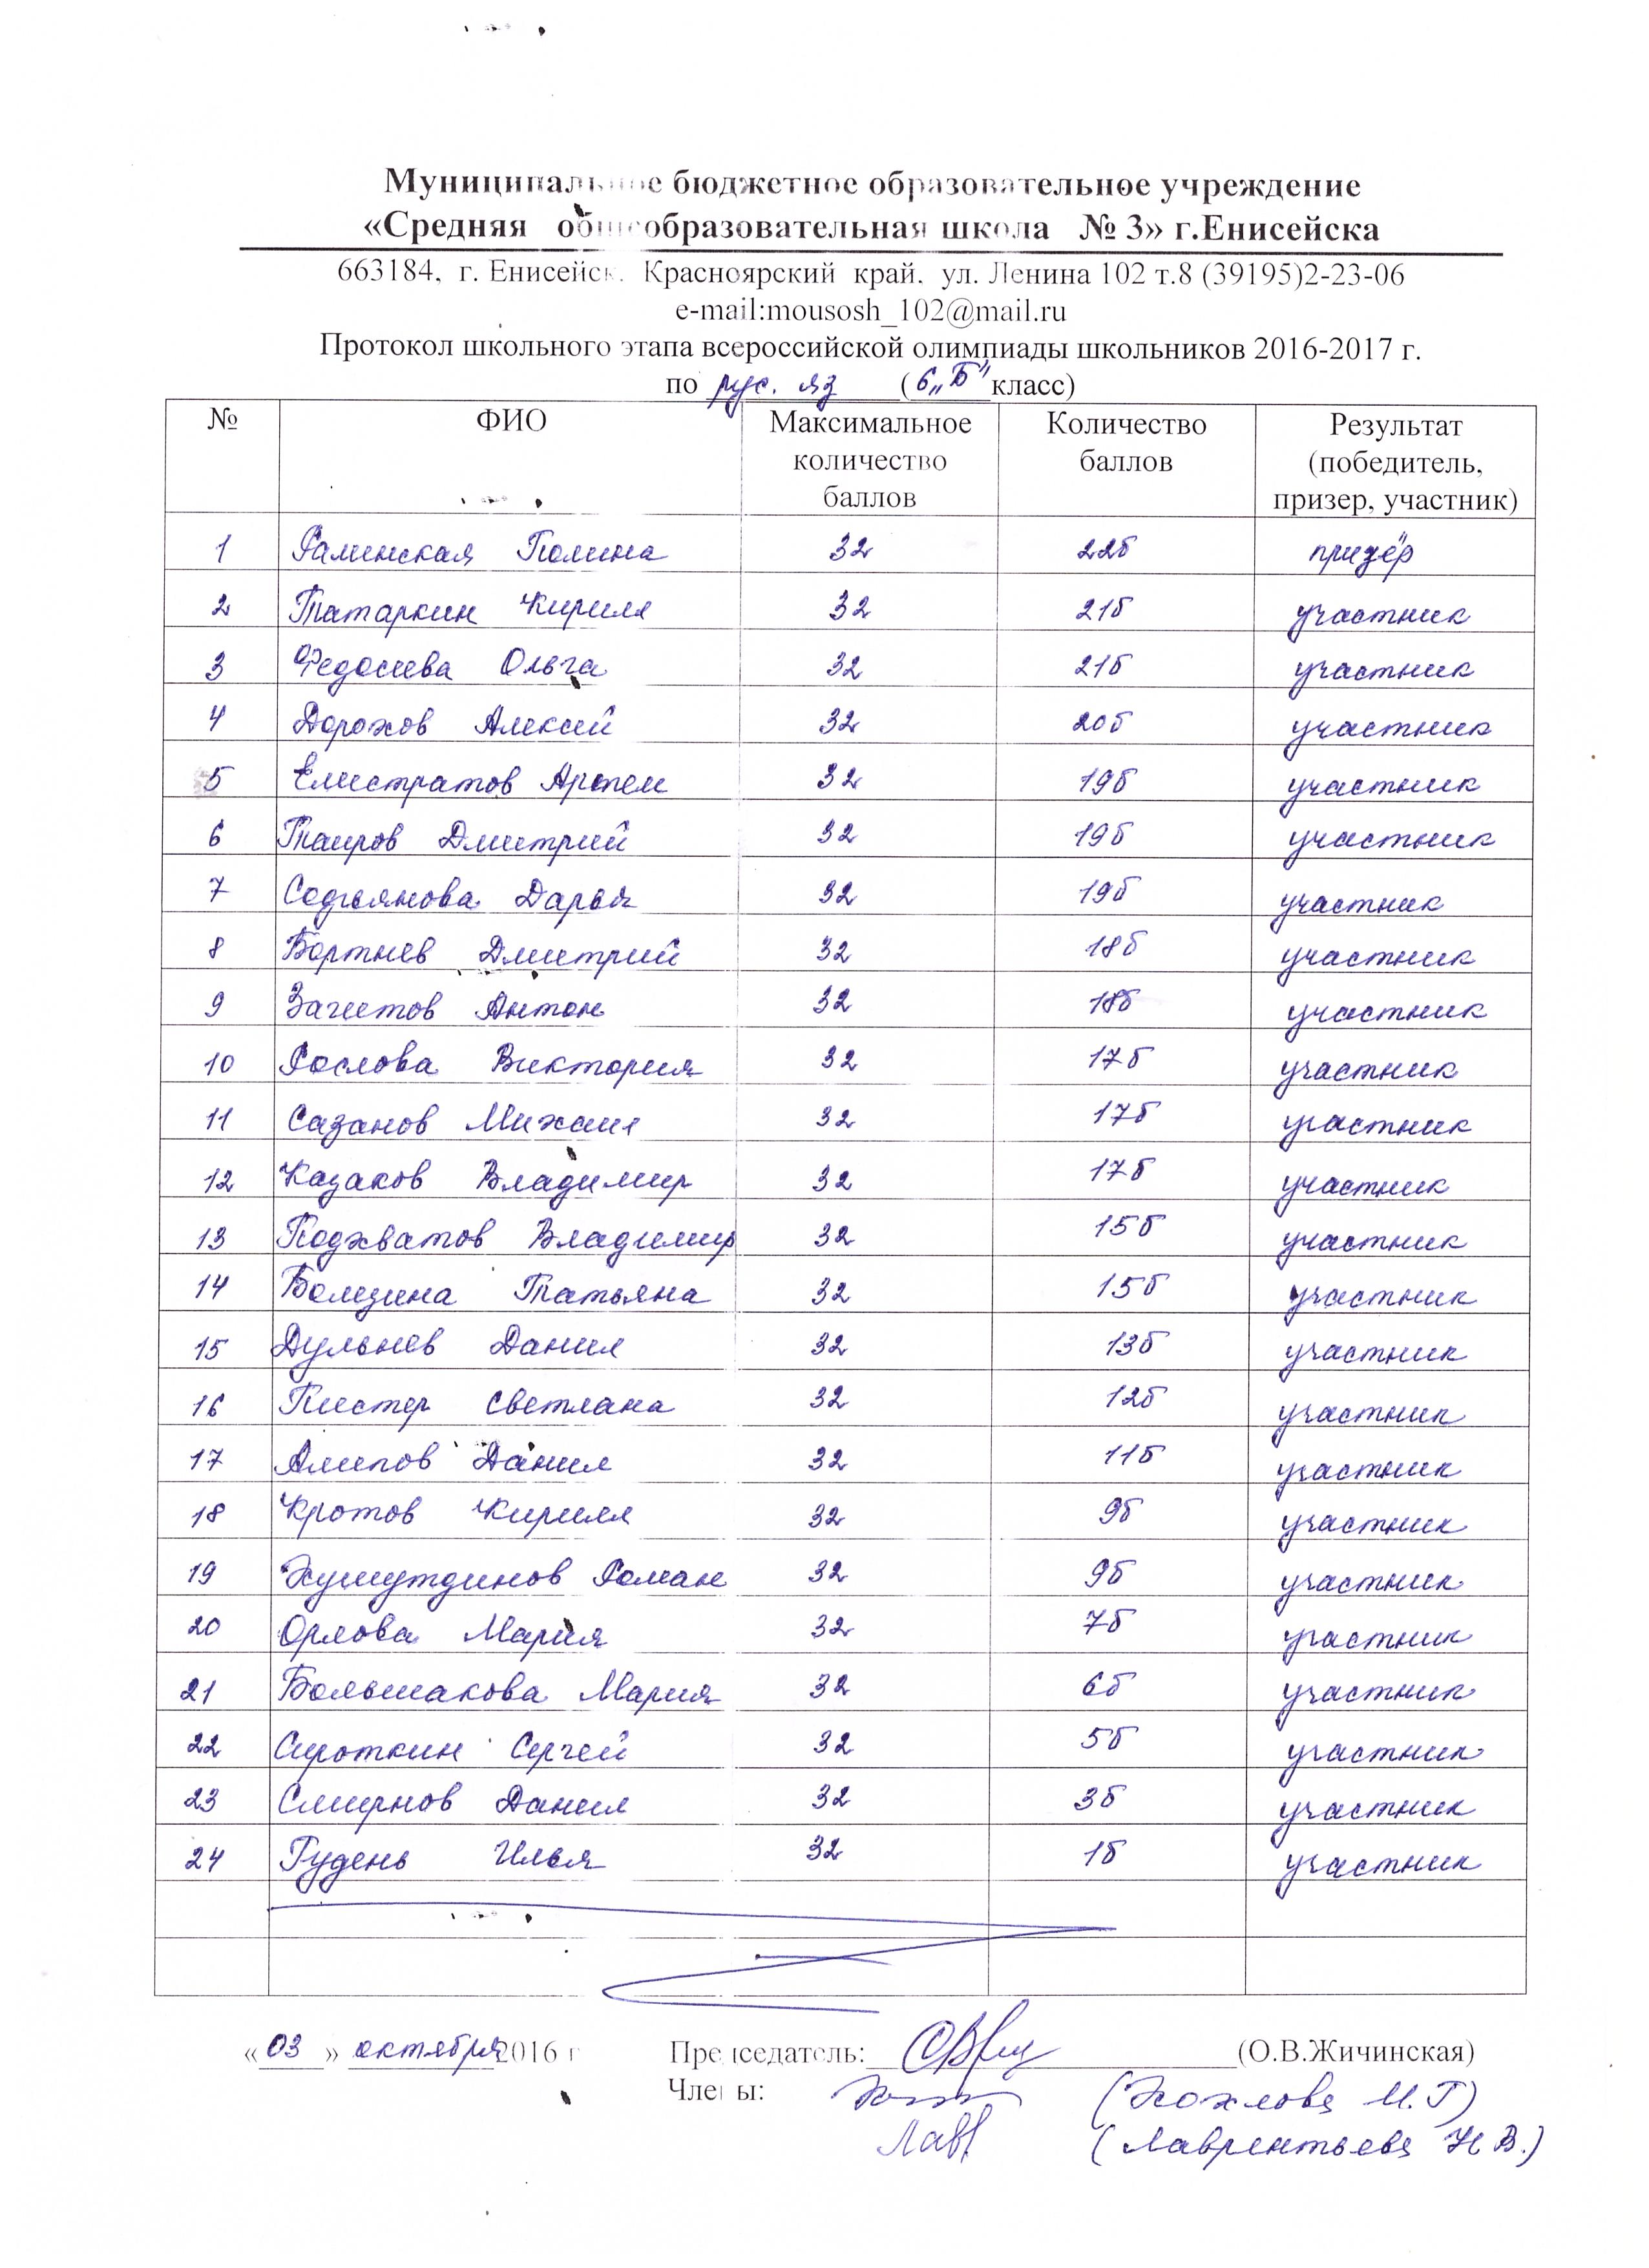 Муниципальное бюджетное образовательное учреждение
«Средняя общеобразовательная школа № 3» г.Енисейска
663184, г. Енисейск. Красноярский край. ул. Ленина 102 т.8 (39195)2-23-06
e-mail:mousosh_102@mail.ru
Протокол школьного этапа всероссийской олимпиады школьников 2016-2017 г.
по рус. яз (6 „Б" класс)
№ ФИО Максимальное количество баллов Количество баллов Результат (победитель, призер, участник)
1 Раминская Полина 32 22б призёр
2 Татаркин Кирилл 32 21б участник
3 Федосеева Ольга 32 21б участник
4 Дорохов Алексей 32 20б участник
5 Елистратов Артем 32 19б участник
6 Таиров Дмитрий 32 19б участник
7 Дарья 32 19б участник
8 Бортнев Дмитрий 32 18б участник
9 Антон 32 18б участник
10 Рослова Виктория 32 17б участник
11 Сазанов Михаил 32 17б участник
12 Казаков Владимир 32 17б участник
13 Подхватов Владимир 32 15б участник
14 Татьяна 32 15б участник
15 Дульнев Данил 32 13б участник
16 Пистер Светлана 32 12б участник
17 Алипов Данил 32 11б участник
18 Кротов Кирилл 32 9б участник
19 Роман 32 9б участник
20 Орлова Мария 32 7б участник
21 Большакова Мария 32 6б участник
22 Сироткин Сергей 32 5б участник
23 Смирнов Данил 32 3б участник
24 Гудень Илья 32 1б участник
«03» октября 2016 г Председатель: (О.В.Жичинская)
Члены: (Хохлова М.Г)
Лавр (Лаврентьева Н В.)